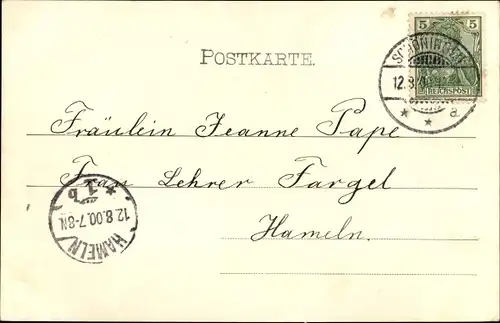 5 5
REICHSPOST
12.8.
* * a
POSTKARTE.
Fräulein Jeanne Pape
Frau Lehrer Fargel
Hameln.
* 1b
12.8.00.7-8N.
HAMELN